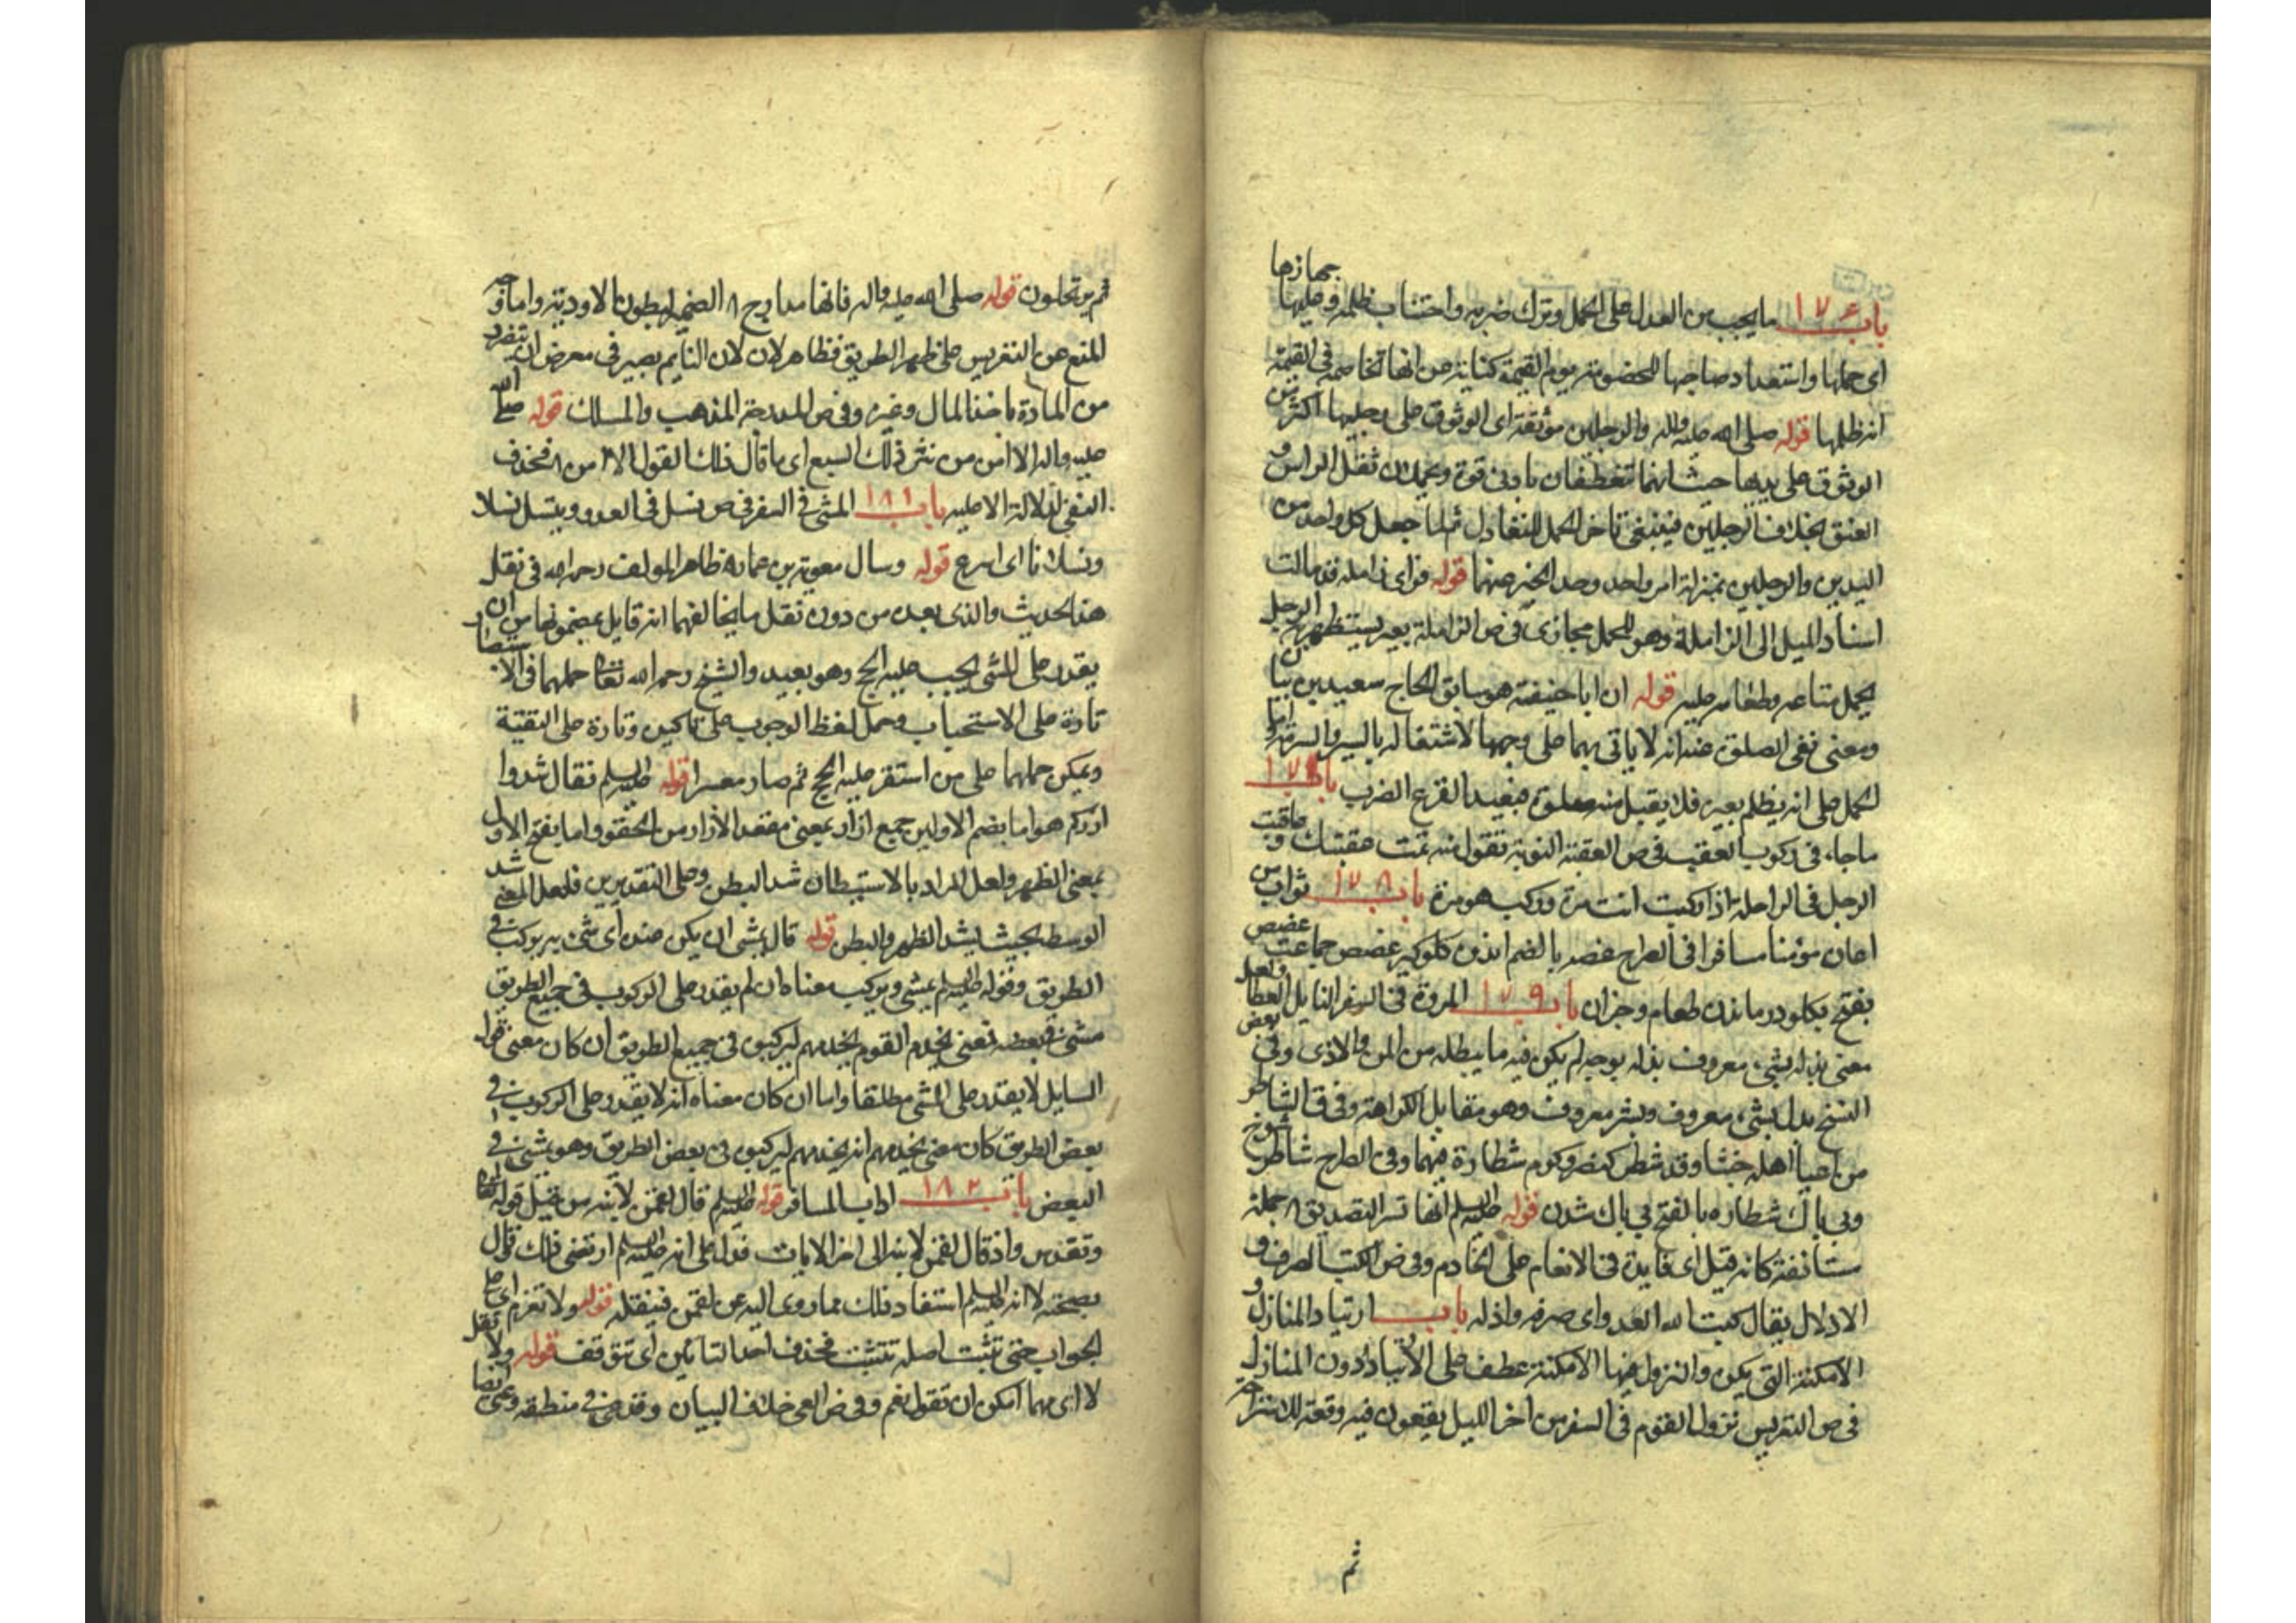 باب ١٧٦ ما يجب من العدل على الجمل وترك ضربه واجتناب ظلمه قوله جهازها وعليها
اى حملها واستعداد صاحبها للخصومة يوم القيمة كناية عن انها تخاصمه فى القيمة
انه ظلمها قوله صلى الله عليه واله والرجلين موثقة اى الوثوق على رجليها اكثر من
الوثوق على يديها حيث انهما تنعطفان بادنى قوة وتحملان ثقل الراس و
العنق بخلاف الرجلين فينبغى تاخر الحمل للتعادل ثم لما جعل كل واحد من
اليدين والرجلين بمنزلة امر واحد وحد الخبر عنهما قوله فراى زاملة قد مالت
اسناد الميل الى الزاملة وهو للحمل مجازى فى ص الزاملة بعير يستظهر به الرجل
يحمل متاعه وطعامه عليه قوله ان ابا حنيفة هو سابق الحاج سعيد بن بيان
ومعنى نفى الصلوة عنه انه لا ياتى بهما على وجهها لاشتغاله بالسير والسرعة او
لحمل على انه يظلم بعيره فلا يقبل منه صلوة فيفيد القرع الضرب باب ١٧٧
ما جاء فى ركوب العقب فى ص العقبة النوبة تقول منه تمت عقبتك وعاقبت
الرجل فى الراحلة اذا ركبت انت مرة وركب هو مرة باب ١٧٨ ثواب من
اعان مؤمنا مسافرا فى الصراح غصه بالضم اندوه كلوكير غصص جماعت غصص
بفتح بكلو در ماندن طعام وجز ان باب ١٧٩ المروة فى السفر النايل العطا ولعل
معنى بذله بشىء معروف بذله بوجه لم يكن فيه ما يبطله من المن والاذى وفى بعض
النسخ بدل بشىء معروف وبشر معروف وهو مقابل الكراهة وفى ق الشاطر
من اعيا اهله خبثا وقد شطر كنصر وكرم شطارة فيهما وفى الصراح شاطر شوخ
وبى باك شطاره بالفتح بى باك شدن قوله عليه السلم انها تسر الصديق جملة
ستانفة كانه قيل اى فايدة فى الانعام على الخادم وفى ص الكبت الصرف و
الاذلال يقال كبت الله العدو اى صرفه واذله باب ارتياد المنازل و
الامكنة التى يكره النزول فيها الامكنة عطف على الارتياد دون المنازل
فى ص التعريس نزول القوم فى السفر من اخر الليل يقعون فيه وقعة للاستراحة
ثم
ثم يرتحلون قوله صلى الله عليه واله فانها مدارج الضمير لبطون الاودية واما وجه
المنع عن التعريس على ظهر الطريق فظاهر لان النايم يصير فى معرض ان يتضرر
من المارة باخذ المال وغيره وفى ص المدرجة المذهب والمسلك قوله صلى الله
عليه واله الا امن من شر ذلك السبع اى ما قال ذلك القول الا امن فحذف
النفى لدلالة الا عليه باب ١٨١ المشى فى السفر فى ص نسل فى العدو وينسل نسلا
ونسلانا اى اسرع قوله وسال معوية بن عمار ظاهر المولف رحمه الله فى نقل
هذا الحديث والذى بعده من دون نقل ما يخالفهما انه قايل بمضمونها من ان من
يقدر على المشى يجب عليه الحج وهو بعيد والشيخ رحمه الله تعالى حملهما فى الاستبصار
تارة على الاستحباب وحمل لفظ الوجوب على تاكيده وتارة على التقية
ويمكن حملهما على من استقر عليه الحج ثم صار معسرا قوله عليه السلم فقال شدوا
ازركم هو اما بضم الاولين جمع ازار بمعنى معقد الازار من الحقو واما بفتح الاول
بمعنى الظهر ولعل المراد بالاستبطان شد البطن وعلى التقديرين فلعل المعنى شد
الوسط بحيث يشد الظهر والبطن قوله قال يمشى ان يكن عنده اى شىء يركب فى
الطريق وقوله عليه السلم يمشى ويركب معناه ان لم يقدر على الركوب فى جميع الطريق
مشى فى بعضه فمعنى يخدم القوم يخدمهم ليركبوه فى جميع الطريق ان كان معنى قول
السايل لا يقدر على المشى مطلقا واما ان كان معناه انه لا يقدر على الركوب فى
بعض الطريق كان معنى يخدمهم انه يخدمهم ليركبوه فى بعض الطريق وهو يمشى فى
البعض باب ١٨٢ اداب المسافر قوله عليه السلم قال لقمن لابنه من قبيل قوله تعالى
وتقدس واذ قال لقمن لابنه الى اخر الايات فدل على انه عليه السلم ارتضى ذلك وقال
بصحته لا انه عليه السلم استفاد ذلك مما روى اليه عن لقمن فينقله قوله ولا تعزم اى على
الجواب حتى تثبت اصله تتثبت فحذف احد التائين اى تتوقف قوله ولا تقل
لا اى مهما امكن ان تقول نعم وفى ص العى خلاف البيان وقد عى فى منطقه وعيى ايضا